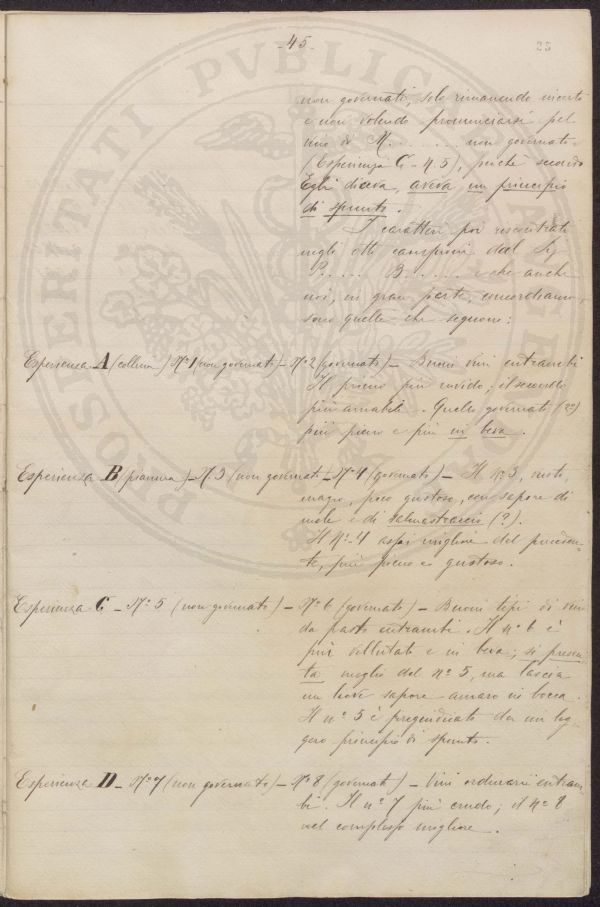 - 45 -
25
non governati, solo rimanendo incerto
e non volendo pronunciarsi pel
vino di M....... non governato
(Esperienza C - N. 5), perchè secondo
Egli diceva, aveva un principio
di spunto.
I caratteri poi riscontrati
negli otto campioni dal Sig
P..... B..... e che anche
noi, in gran parte, concordiamo,
sono quelli che seguono:
Esperienza A (collina) N.o 1 (non governato) - N.o 2 (governato) - Buoni vini entrambi
Il primo più ruvido; il secondo
più amabile. Quello governato (2o)
più pieno e più in beva.
Esperienza B (pianura) - N. 3 (non governato) - N.o 4 (governato) - Il n.o 3, molto
magro, poco gustoso, con sapore di
mole e di salmastraccio (?).
Il N.o 4 assai migliore del preceden-
te, più pieno e gustoso.
Esperienza C - N.o 5 (non governato) - N.o 6 (governato) - Buoni tipi di vini
da pasto entrambi. Il n.o 6 è
più vellutato e in beva, si presen-
ta meglio del n.o 5, ma lascia
un lieve sapore amaro in bocca.
Il n.o 5 è pregiudicato da un leg-
gero principio di spunto.
Esperienza D - N.o 7 (non governato) - N.o 8 (governato) - Vini ordinarii entram-
bi. Il n.o 7 più crudo; il n.o 8
nel complesso migliore.
PROSPERITATI PVBLICAE AVGENDAE